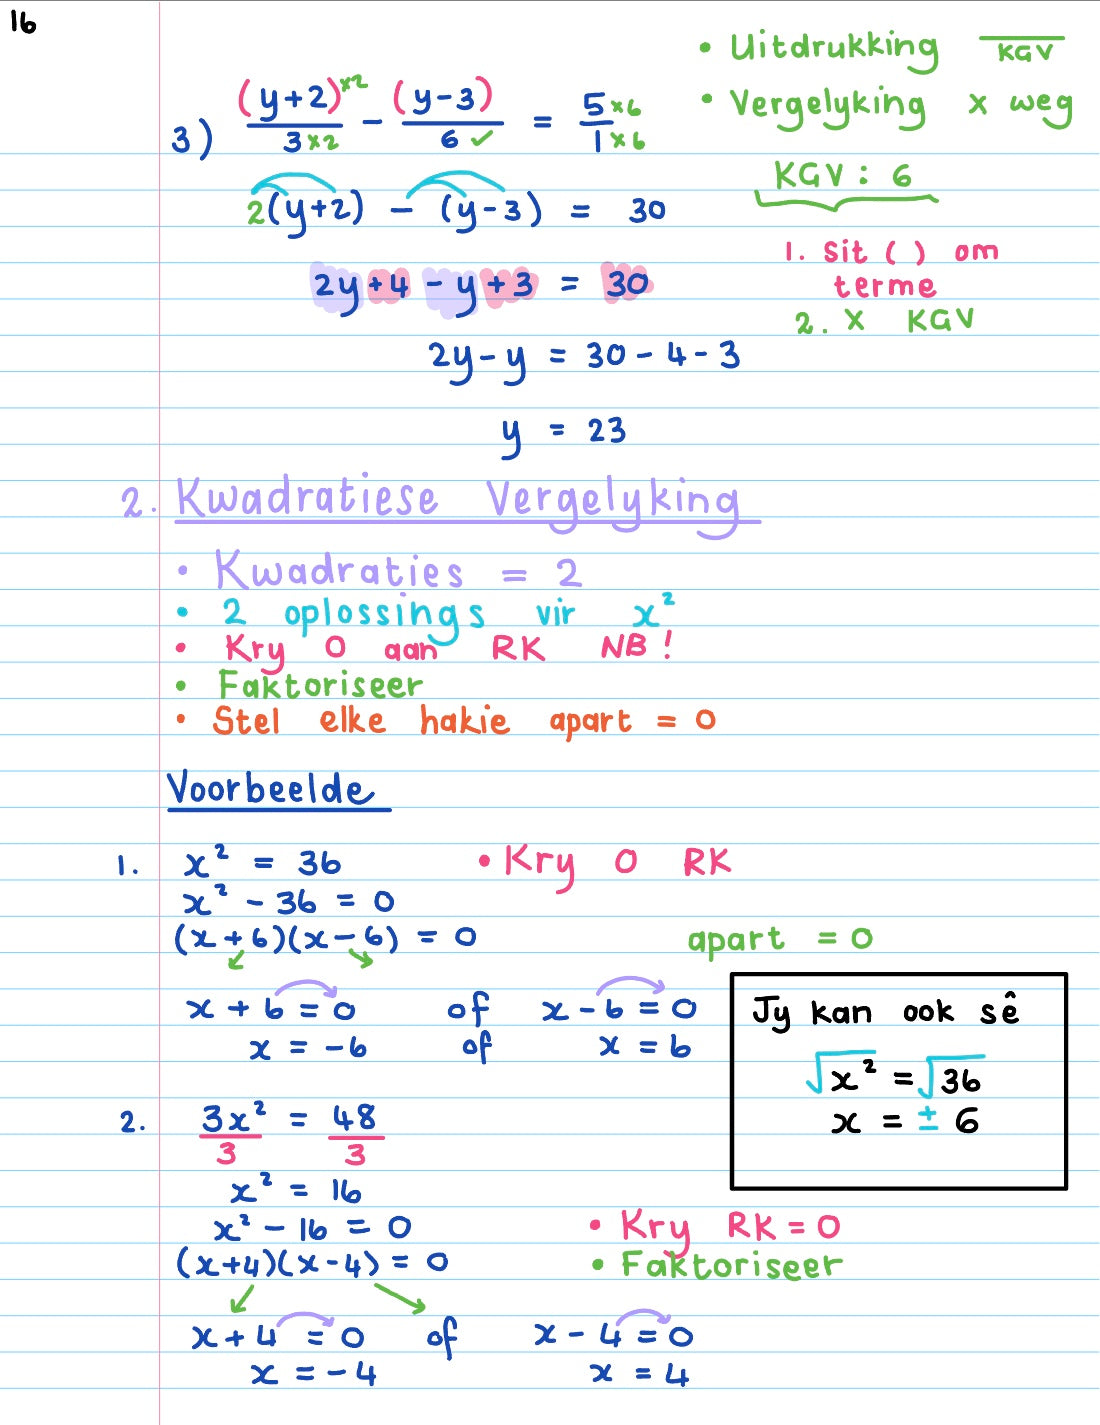 16
• Uitdrukking ‾KGV
• Vergelyking x weg
3) (y+2)ˣ² / 3 ×2 − (y−3) / 6 ✓ = 5 ×6 / 1 ×6
KGV : 6
2(y+2) − (y−3) = 30
1. Sit ( ) om
terme
2. X KGV
2y +4 − y +3 = 30
2y − y = 30 − 4 − 3
y = 23
2. Kwadratiese Vergelyking
• Kwadraties = 2
• 2 oplossings vir x²
• Kry 0 aan RK NB!
• Faktoriseer
• Stel elke hakie apart = 0
Voorbeelde
1. x² = 36 • Kry 0 RK
x² − 36 = 0
(x + 6)(x − 6) = 0 apart = 0
x + 6 = 0 of x − 6 = 0
x = −6 of x = 6
Jy kan ook sê
√x² = √36
x = ± 6
2. 3x² / 3 = 48 / 3
x² = 16
x² − 16 = 0 • Kry RK = 0
(x+4)(x−4) = 0 • Faktoriseer
x + 4 = 0 of x − 4 = 0
x = −4 x = 4